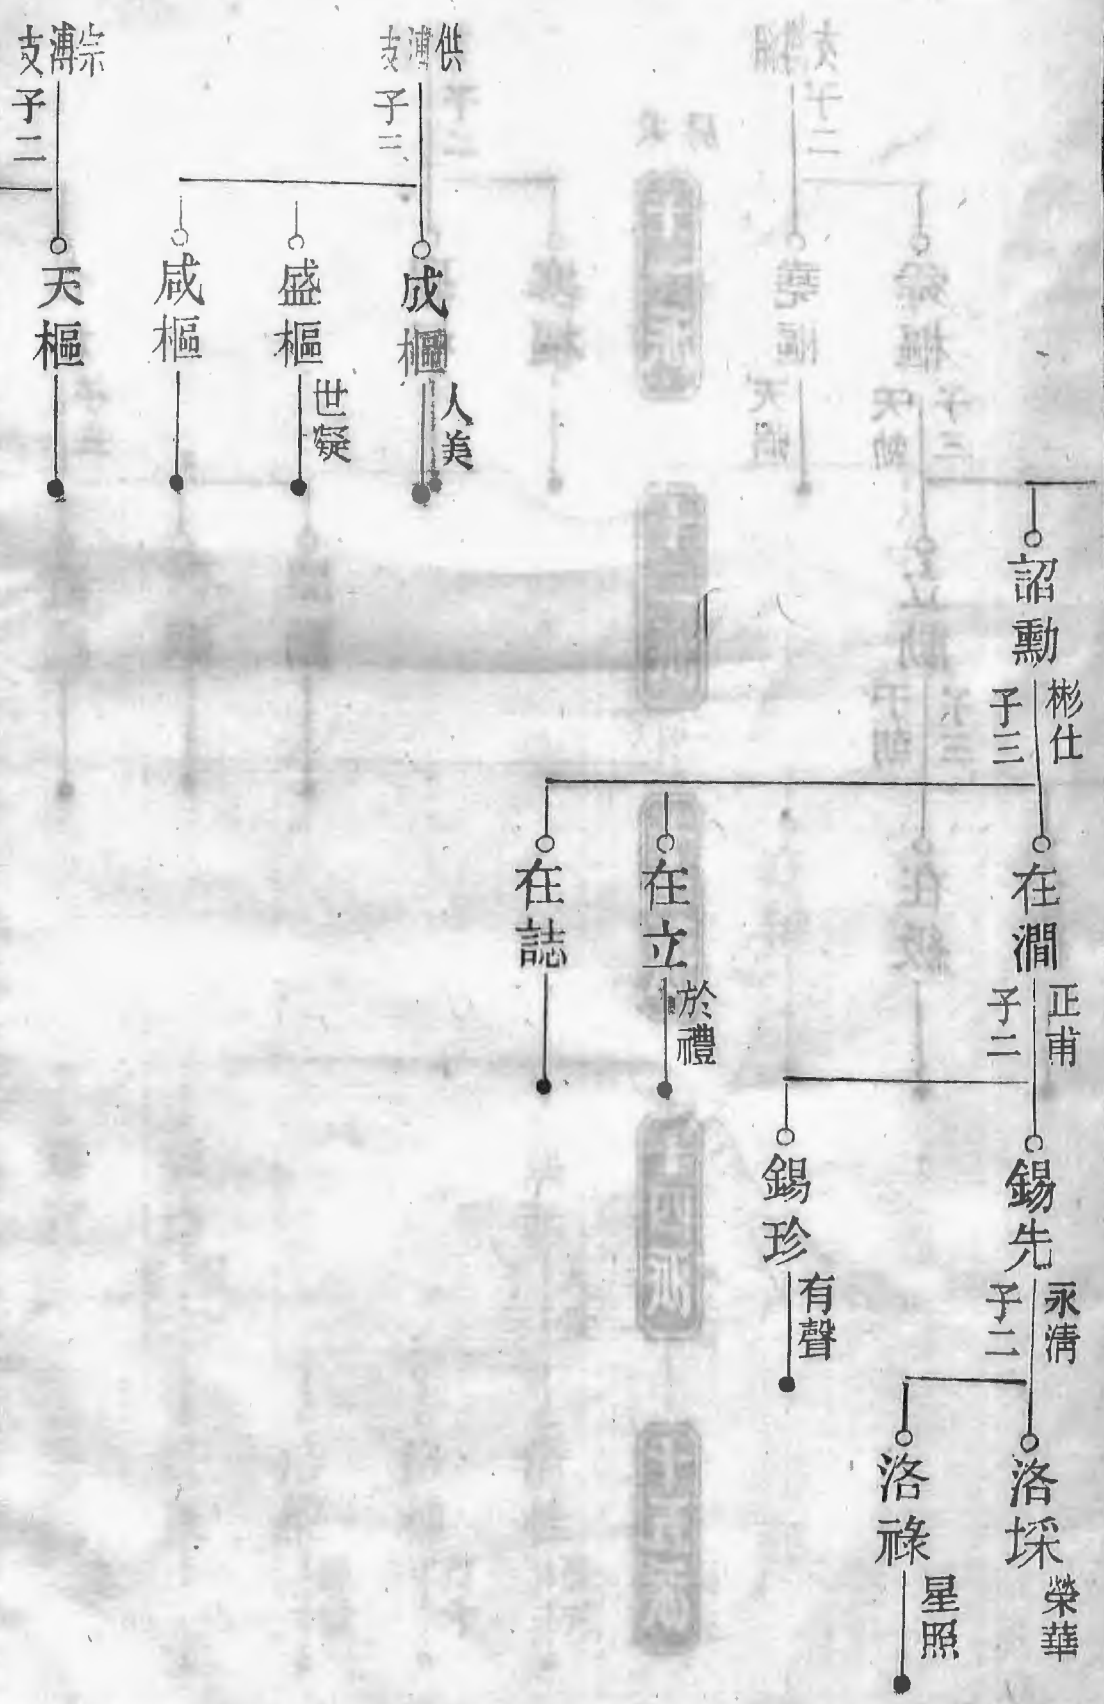 詔勳
彬仕
子三
在澗
正甫
子二
錫先
永淸
子二
洛埰
榮華
洛祿
星照
錫珍
有聲
在立
於禮
在誌
供溥支
子三
成樞
人美
盛樞
世凝
咸樞
宗溥支
子二
天樞